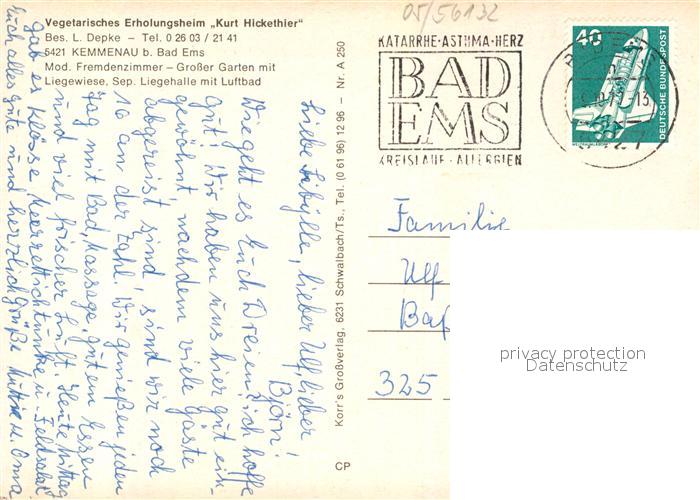 05/56132
Vegetarisches Erholungsheim „Kurt Hickethier"
Bes. L. Depke – Tel. 0 26 03 / 21 41
5421 KEMMENAU b. Bad Ems
Mod. Fremdenzimmer – Großer Garten mit
Liegewiese, Sep. Liegehalle mit Luftbad
Liebe Sibylle, lieber Ulf, lieber
Björn!
Wie geht es Euch Dreien? Ich hoffe
gut! Wir haben uns hier gut ein-
gewöhnt, nachdem viele Gäste
abgereist sind, sind wir noch
16 an der Zahl. Wir genießen jeden
Tag mit Bad, Massage, gutem Essen
und viel frischer Luft. Heute Mittag
gab es klasse Meerrettichtunke u. Feldsalat
Euch alles Gute und herzlich Grüße Mutti u. Oma
Korr's Großverlag, 6231 Schwalbach/Ts., Tel. (0 61 96) 12 96 – Nr. A 250
CP
KATARRHE·ASTHMA·HERZ
BAD
EMS
KREISLAUF·ALLERGIEN
40
DEUTSCHE BUNDESPOST
WELTRAUMLABOR
Familie
Ulf
325
privacy protection
Datenschutz